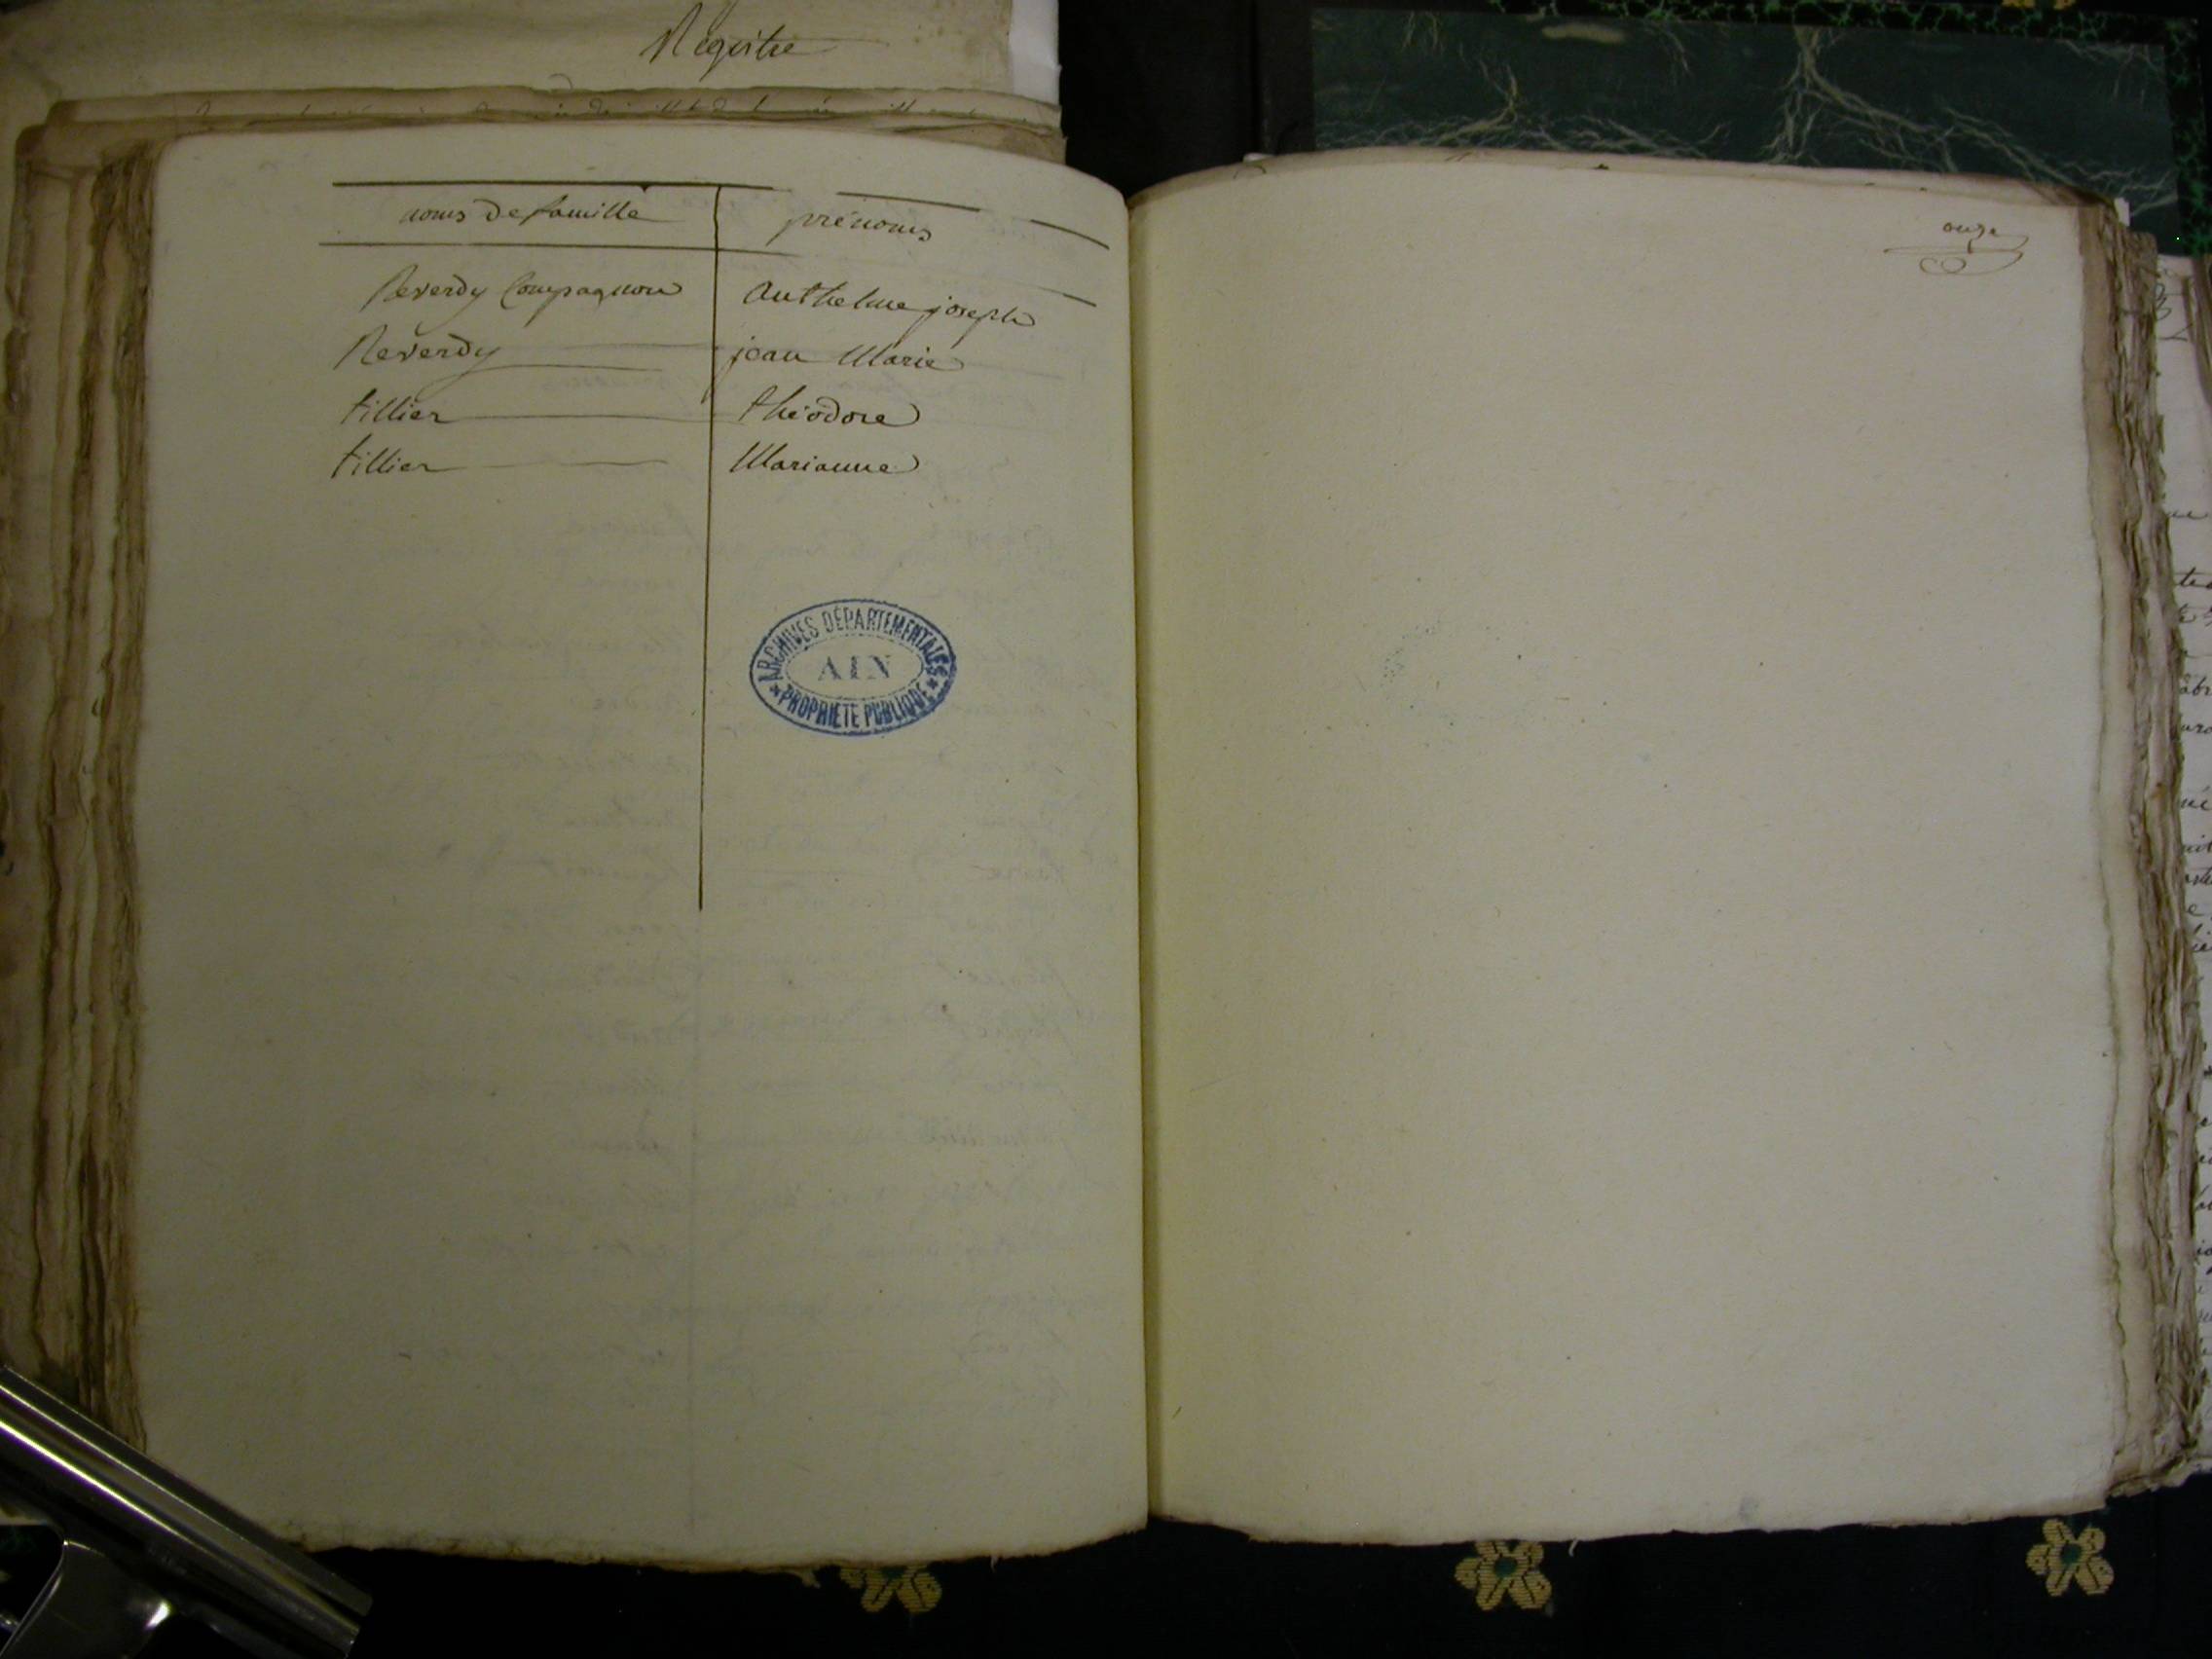 Registre
noms de famille prénoms
Reverdy Compagnon Anthelme joseph
Reverdy jean Marie
tillier théodore
tillier Marianne
ARCHIVES DÉPARTEMENTALES
AIN
* PROPRIÉTÉ PUBLIQUE *
onze